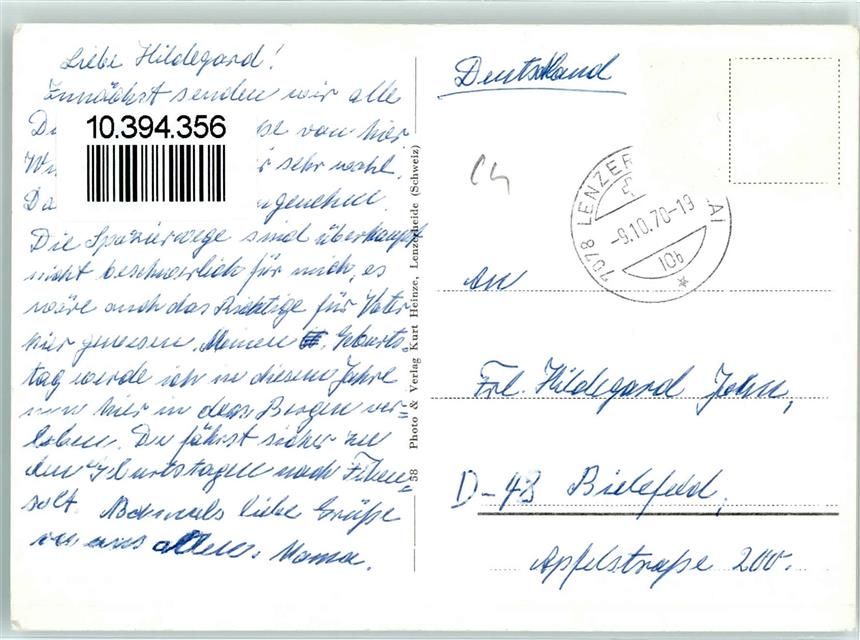 Liebe Hildegard!
Zunächst senden wir alle
10.394.356
von hier.
sehr wohl.
Die Spazierwege sind überhaupt
nicht beschwerlich für mich, es
wäre auch das Richtige für Vater
hier gewesen. Meinen Geburts-
tag werde ich in diesem Jahre
nun hier in den Bergen ver-
leben. Du fährst sicher zu
den Geburtstagen nach
Nochmals liebe Grüße
von uns allen. Mama.
58 Photo & Verlag Kurt Heinze, Lenzerheide (Schweiz)
Deutschland
7078 LENZER
-9.10.70-19
An
Frl. Hildegard John,
D-48 Bielefeld,
Apfelstraße 200.